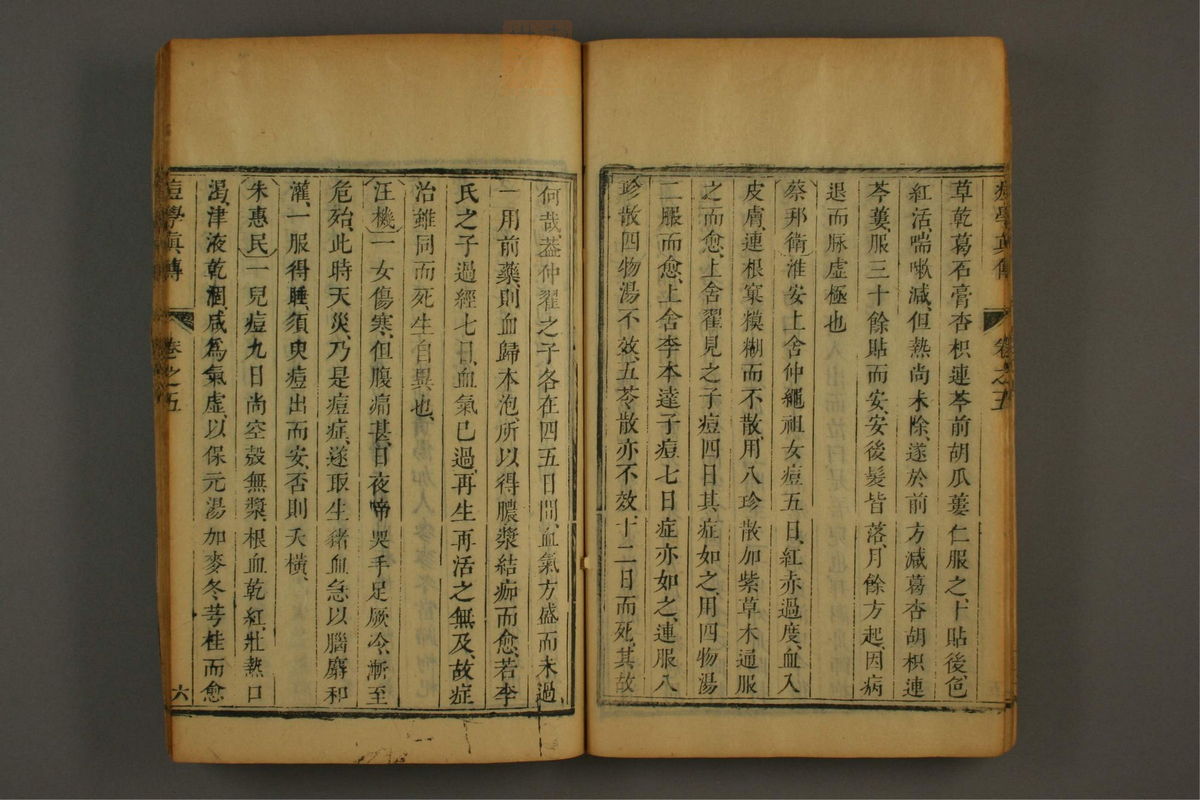 痘學眞傳 卷之五
草乾葛石膏杏枳連芩前胡瓜蔞仁服之十貼後色
紅活喘嗽減但熱尚未除遂於前方減葛杏胡枳連
芩蔞服三十餘貼而安安後髮皆落月餘方起因病
退而脉虛極也
蔡邦衛淮安上舍仲繩祖女痘五日紅赤過度血入
皮膚連根窠模糊而不散用八珍散加紫草木通服
之而愈上舍翟見之子痘四日其症如之用四物湯
二服而愈上舍李本達子痘七日症亦如之連服八
珍散四物湯不效五苓散亦不效十二日而死其故
何哉葢仲翟之子各在四五日間血氣方盛而未過
一用前藥則血歸本泡所以得膿漿結痂而愈若李
氏之子過經七日血氣已過再生再活之無及故症
治雖同而死生自異也
汪機一女傷寒但腹痛甚日夜啼哭手足厥冷漸至
危殆此時天災乃是痘症遂取生豬血急以腦麝和
灌一服得睡須臾痘出而安否則夭橫
朱惠民一兒痘九日尚空殼無漿根血乾紅壯熱口
渴津液乾涸咸爲氣虛以保元湯加麥冬芎桂而愈
痘學眞傳 卷之五 六